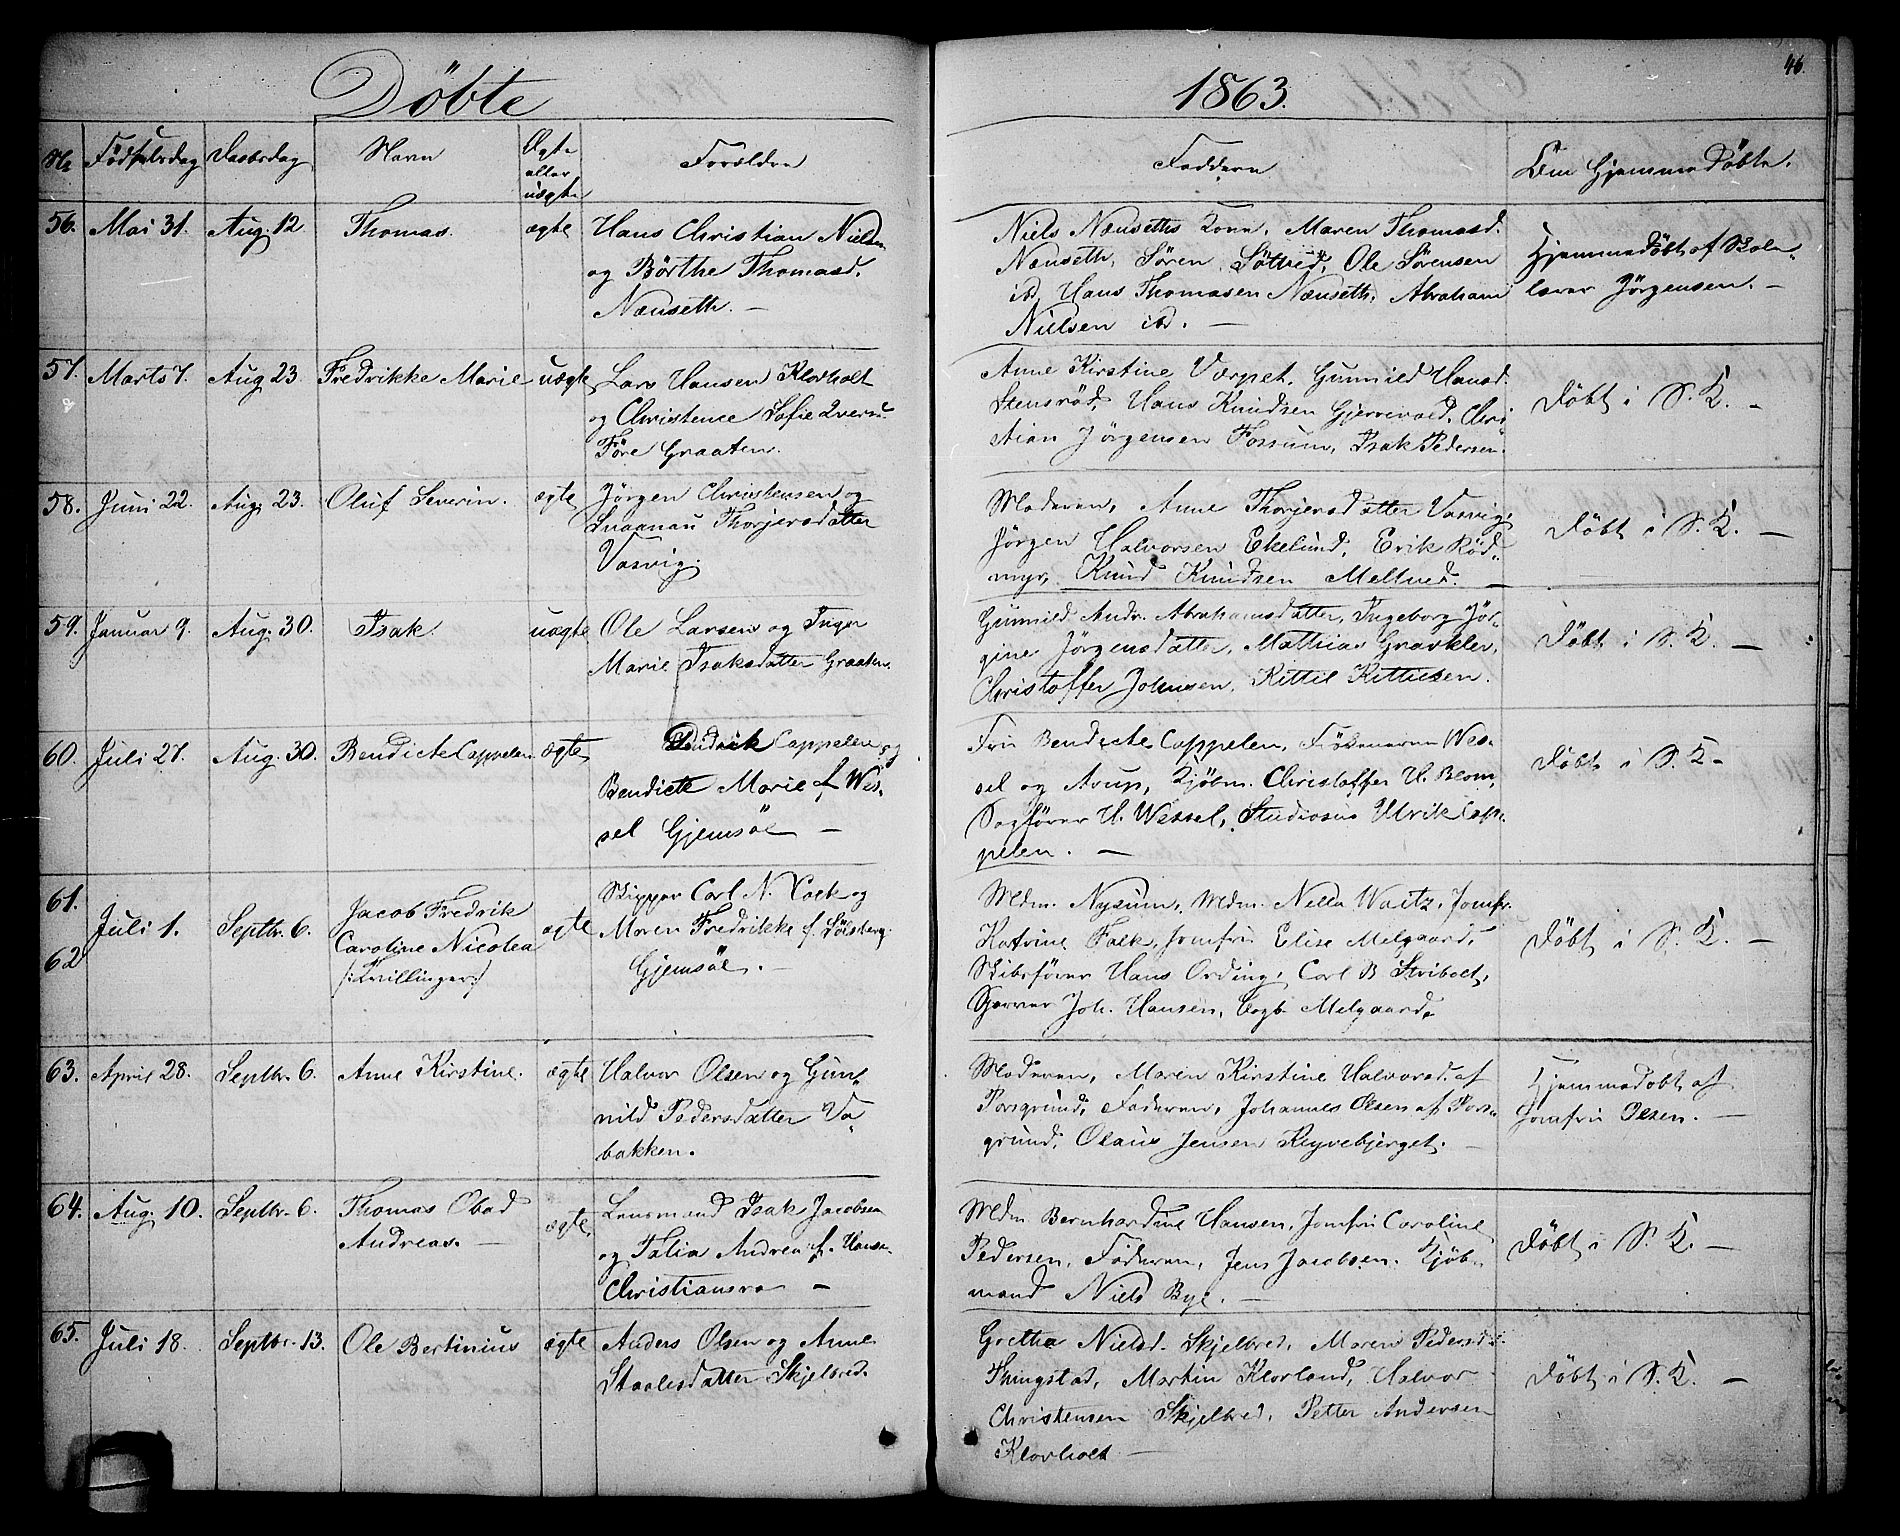 Döbte 1863. 46.
No Födselsdag Daabsdag Navn Ægte eller uægte Forældre Faddere Om Hjemmedöbte.
56. Mai 31. Aug. 12 Thomas. ægte Hans Christian Nielsen
og Börthe Thomasd.
Næuseth. —
Niels Næuseths Kone, Maren Thomasd.
Næuseth, Sören Ole Sörensen
ibd, Hans Thomasen Næuseth, Abraham
Nielsen ibd. —
Hjemmedöbt af Skole-
lærer Jörgensen. —
57. Marts 7. Aug 23. Fredrikke Marie uægte Lars Hansen Klovholt
og Christence Sofie
Töre Graaten.
Anne Kirstine Værpet, Gunnild Hansd.
Stensröd, Hans Knudsen Gjerrevald, Chri-
stian Jörgensen Fossum, Isak Pedersen.
Döbt i S. K. —
58. Juni 22. Aug. 23. Oluf Severin. ægte Jörgen Christensen og
Thorjersdatter
Vasvig.
Moderen, Anne Thorjersdatter Vasvig,
Jörgen Halvorsen Ekelund, Erik Röd-
myr, Knud Knudsen —
Döbt i S. K. —
59. Januar 9. Aug. 30. Isak. uægte Ole Larsen og Inger
Marie Isaksdatter Graaten.
Gunnild Andr. Abrahamsdatter, Ingeborg Jör-
gine Jörgensdatter, Mathias Gravklev,
Christoffer Johnsen, Kittil Kittilsen.
Döbt i S. K. —
60. Juli 27. Aug. 30. Bendicte Cappelen ægte Didrick Cappelen og
Bendicte Marie f. Wes-
sel Gjemsöe —
Fru Bendicte Cappelen, Frökenerne Wes-
sel og Arup, Kjöbm. Christoffer H. Blom,
Sagförer H. Wessel, Studiosus Ulrik Cap-
pelen. —
Döbt i S. K. —
61.
62 Juli 1. Septbr. 6. Jacob Fredrik
Caroline Nicolea
/:Tvillinger:/ ægte Skipper Carl N. Falck og
Maren Fredrikke f. Sölsberg
Gjemsöe. —
Mdm. Nysum, Mdm. Nella Waitz, Jomfr.
Katrine Falk, Jomfru Elise Melgaard,
Skibsförer Hans Ording, Carl B Stribolt,
Garver Joh. Hansen, Melgaard.
Döbt i S. K. —
63. April 28. Septbr. 6. Anne Kirstine. ægte Halvor Olsen og Gun-
nild Pedersdatter Va-
bakken.
Moderen, Maren Kirstine Halvorsd. af
Porsgrund, Faderen, Johannes Olsen af Pors-
grund, Olaus Jensen Klyvebjerget.
Hjemmedöbt af
Jomfru Olsen. —
64. Aug. 10. Septbr. 6. Thomas Obad
Andreas. — ægte Lensmand Isak Jacobsen
og Talia Andrea f. Hansen
Christiansro —
Mdm Bernhardine Hansen, Jomfru Caroline
Pedersen, Faderen, Jens Jacobsen. Kjöb-
mand Niels Bye. —
Döbt i S. K. —
65. Juli 18. Septbr. 13. Ole Bertinius ægte Anders Olsen og Anne
Staalesdatter Skjelbred.
Grethe Nielsd. Skjelbred, Maren Pedersd.
Thingstad, Martin Klovland, Halvor
Christensen Skjelbred, Petter Andersen
Klovholt —
Döbt i S. K. —